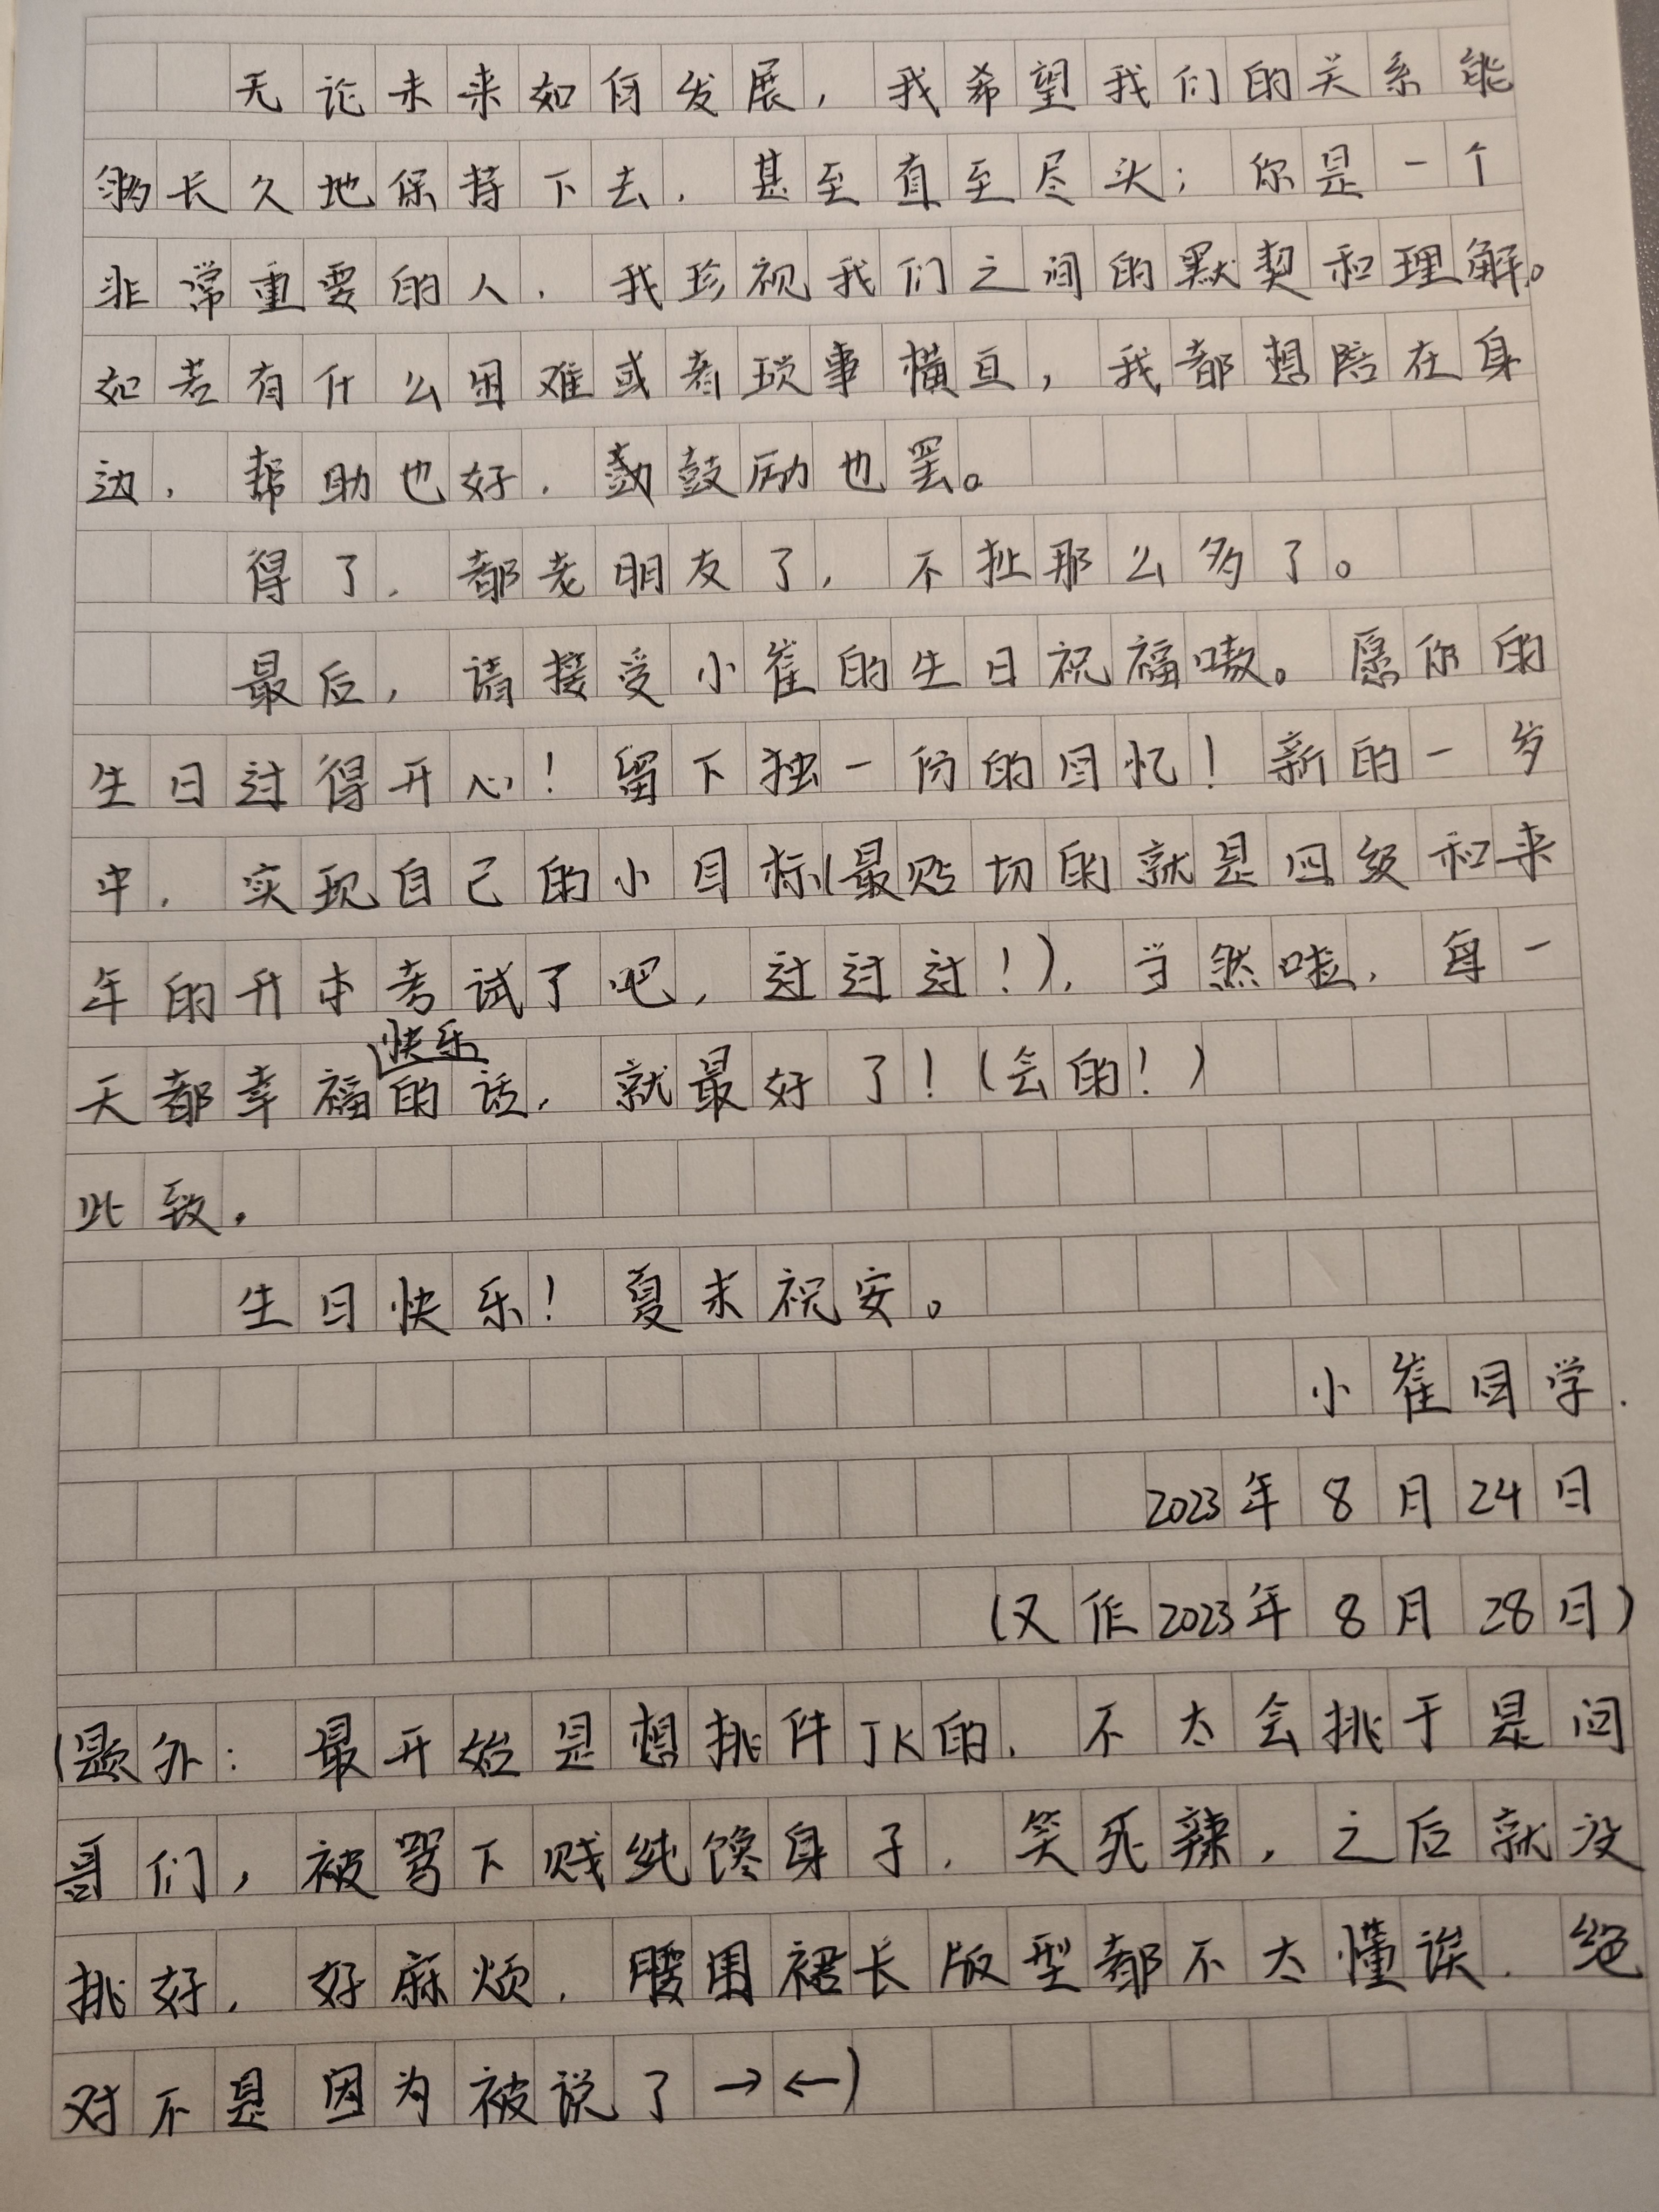 无论未来如何发展，我希望我们的关系能
够长久地保持下去，甚至直至尽头；你是一个
非常重要的人，我珍视我们之间的默契和理解。
如若有什么困难或者琐事横亘，我都想陪在身
边，帮助也好，鼓励也罢。
得了，都老朋友了，不扯那么多了。
最后，请接受小崔的生日祝福嗷。愿你的
生日过得开心！留下独一份的回忆！新的一岁
中，实现自己的小目标(最贴切的就是四级和来
年的升本考试了吧，过过过！)，当然啦，每一
快乐
天都幸福的话，就最好了！(会的！)
此致，
生日快乐！夏末祝安。
小崔同学.
2023年8月24日
(又作2023年8月28日)
(题外：最开始是想挑件JK的，不太会挑于是问
哥们，被骂下贱纯馋身子，笑死辣，之后就没
挑好，好麻烦，腰围裙长版型都不太懂诶，绝
对不是因为被说了→←)